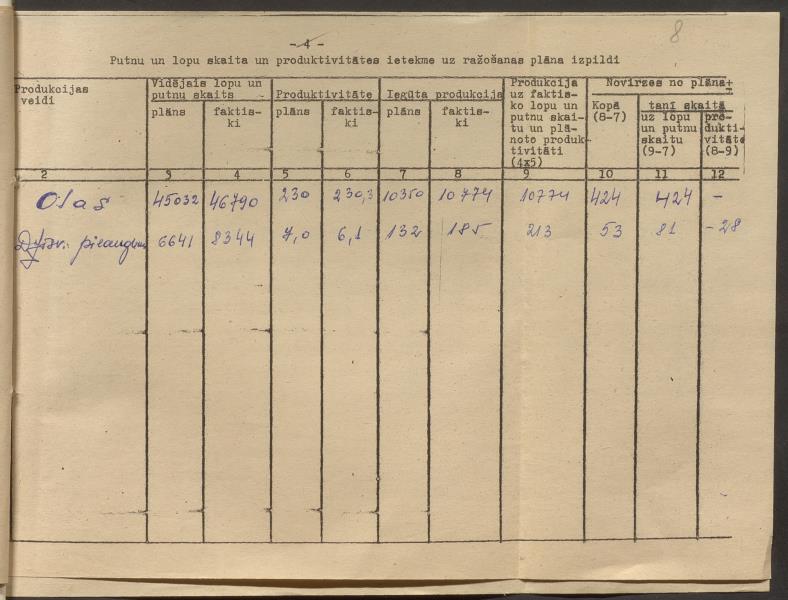 8
-4-
Putnu un lopu skaita un produktivitātes ietekme uz ražošanas plāna izpildi
Produkcijas veidi
Vidējais lopu un putnu skaits
Produktivitāte
Iegūta produkcija
Produkcija uz faktis-
ko lopu un
putnu skai-
tu un plā-
noto produk-
tivitāti
(4x5)
Novirzes no plāna+
plāns faktis-
ki
plāns faktis-
ki
plāns faktis-
ki
Kopā
(8-7)
tanī skaitā
uz lopu
un putnu
skaitu
(9-7)
pro-
dukti-
vitāte
(8-9)
2 3 4 5 6 7 8 9 10 11 12
Olas 45032 46790 230 230,3 10350 10774 10774 424 424 -
pieaugums 6641 8344 7,0 6,1 132 185 213 53 81 -28